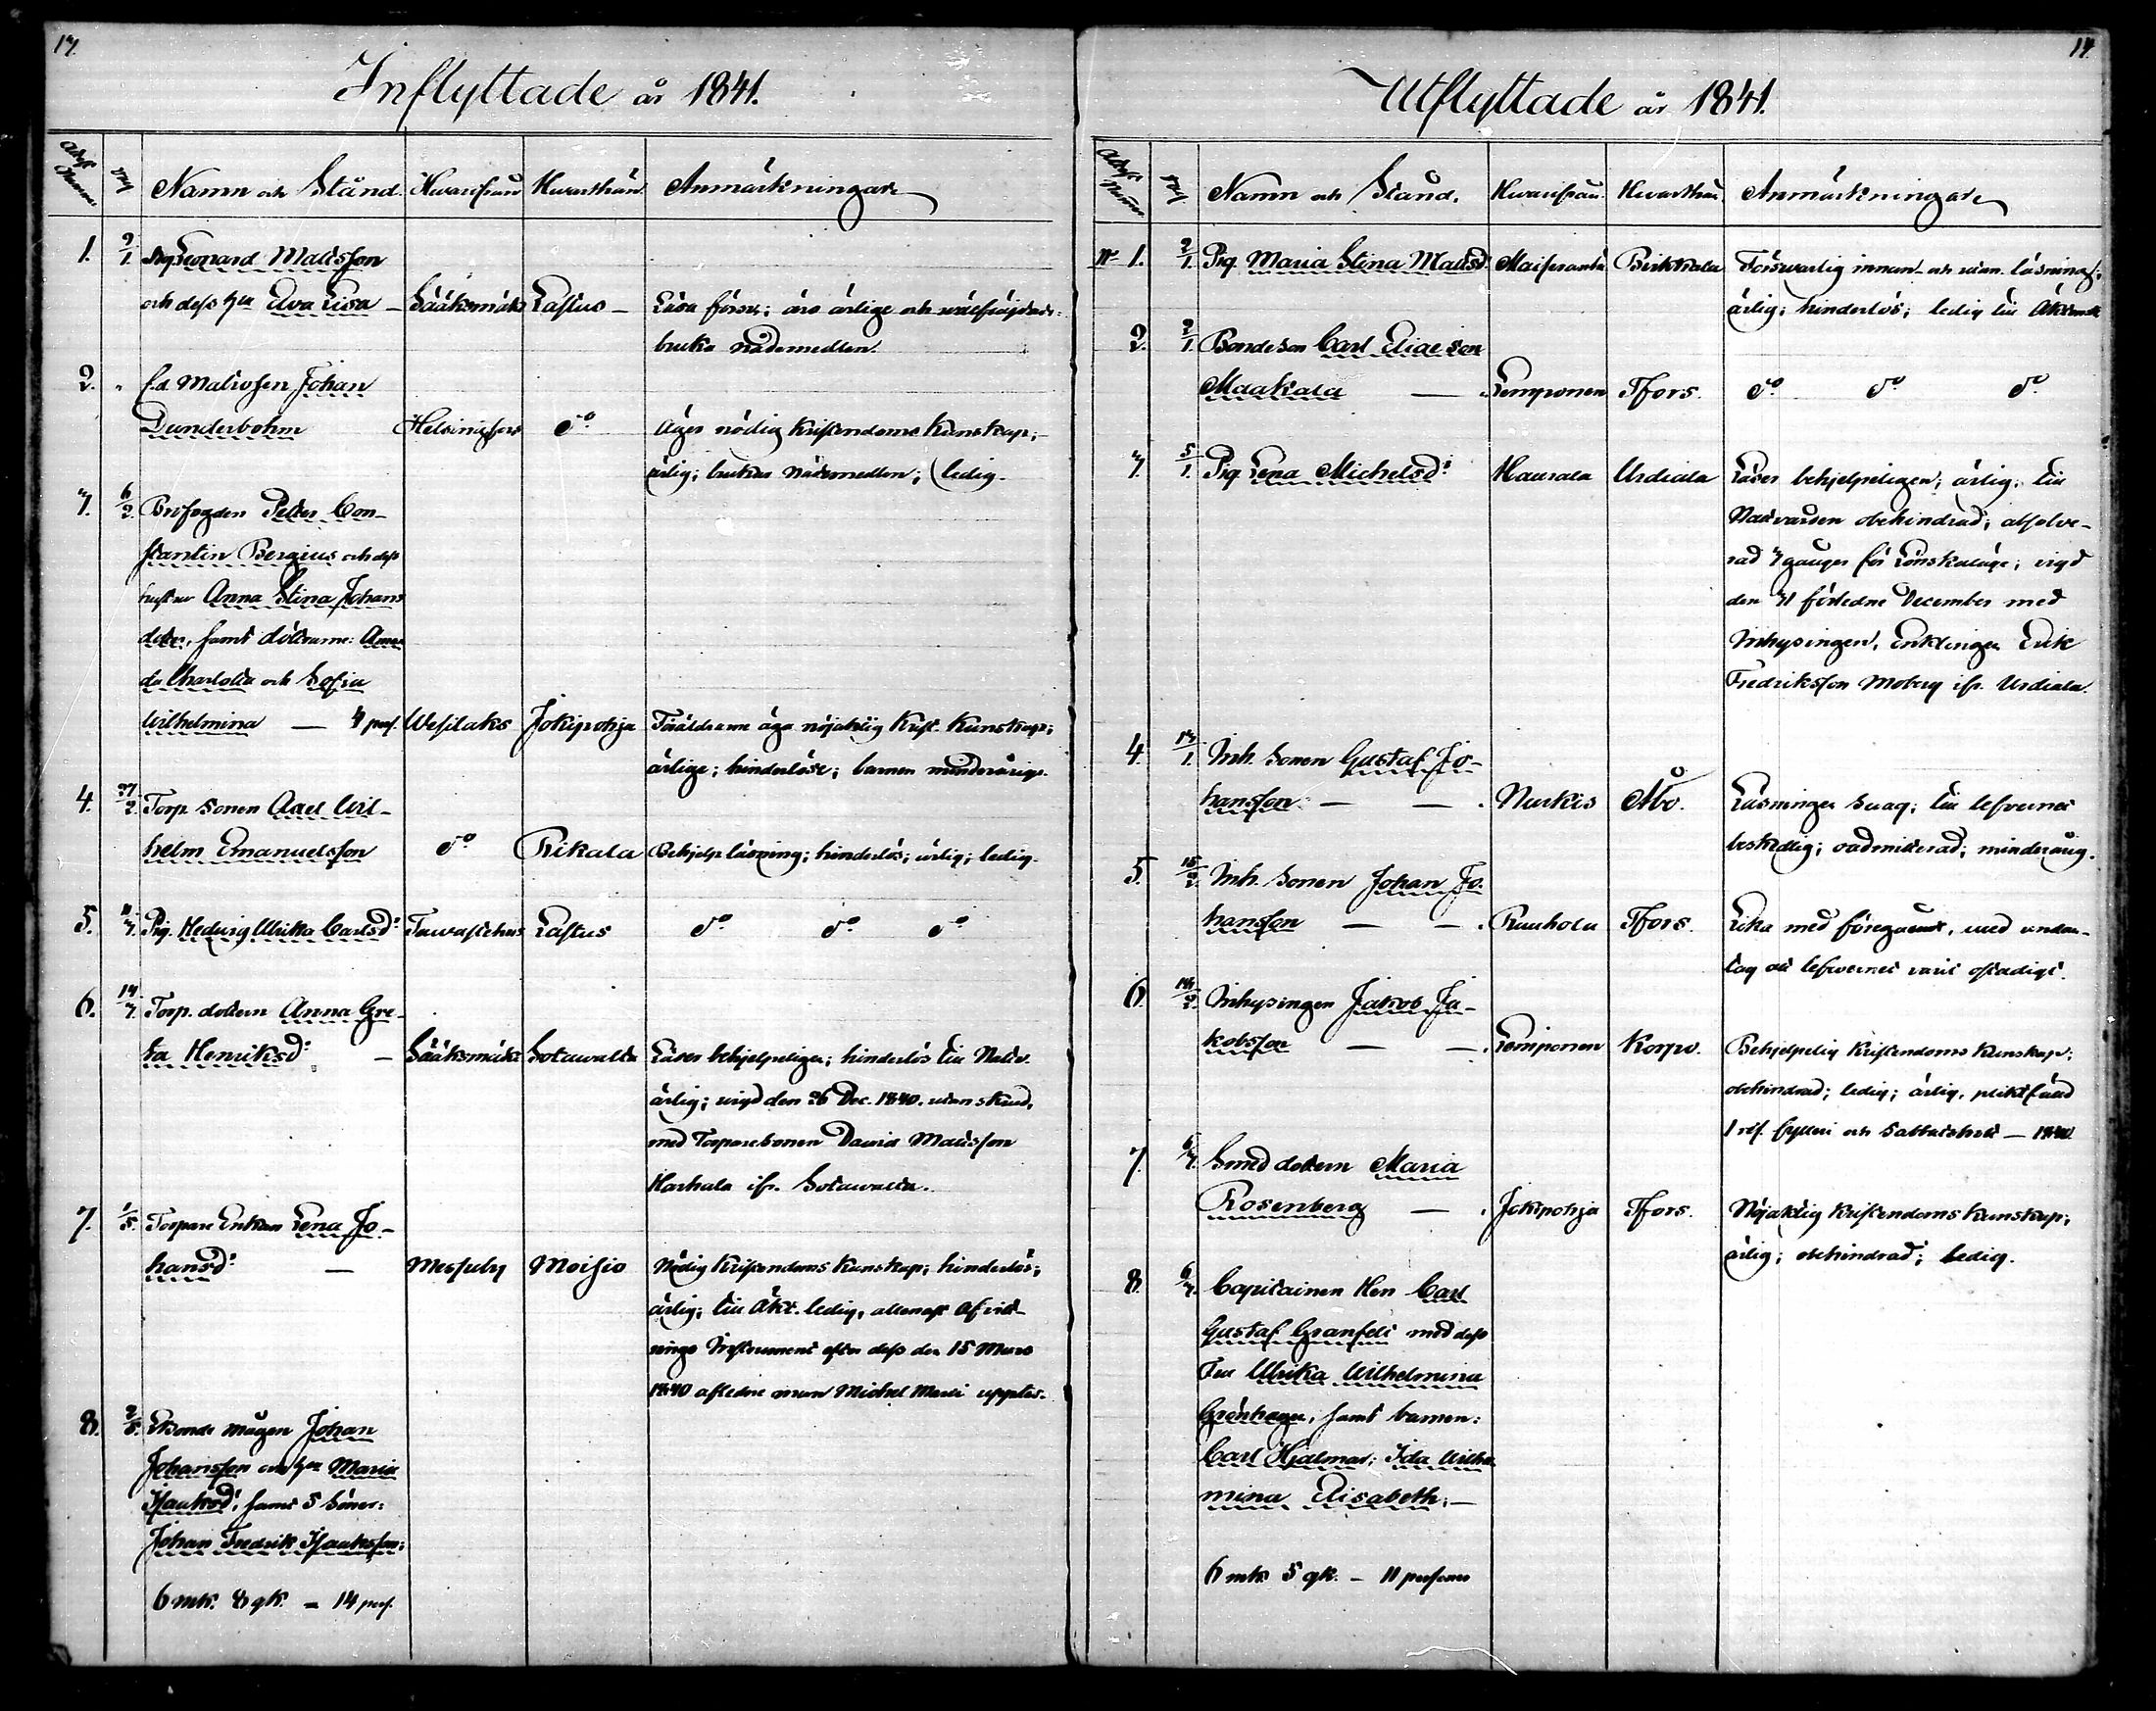 17.
Inflyttade år 1841.
Attest Numm. Dag Namn och Stånd. Hwarifrån Hwarthän. Anmärkningar
1. 2/1. Leonard Matsson
och dess hu Eva Lisa – Sääksmäki Lastus – Läsa försv.; äro ärlige och
bruka nådemedlen.
2. " f.d. Matrosen Johan
Dunderbohm Helsingfors do Äger nödig kristendoms kunskap;
ärlig; brukar nådemedlen; ledig.
3. 6/2. Peter Con-
stantin Bergius och dess
hustru Anna Stina Johans
dotter, samt döttrarne: Aman
da Charlotta och Sofia
Wilhelmina — 4 pers. Wesilaks Jokipohja Föräldrarne äga nöjaktig Krist. Kunskap;
ärlige; hinderlöse; barnen minderårige.
4. 27/2. Torp. Sonen Axel Wil-
helm Emanuelsson do Rikala Behjelp. läsning; hinderlös; ärlig; ledig.
5. 11/3. Pig. Hedwig Ulrika Carlsdr Tawastehus Lastus do do do
6. 14/3. Torp. dottern Anna Gre-
ta Henriksdr – Sääksmäki Sotawalta Läser behjelpeligen; hinderlös till Nattv.
ärlig; wigd den 26 Dec. 1840.
med Torparesonen David Matsson
Harhala ifr. Sotawalta.
7. 1/5. Torpare Enkan Lena Jo-
hansdr — Messuby Moisio Nödig Kristendoms Kunskap; hinderlös;
ärlig; till Äkt. ledig, allenast Afvitt-
rings Instrument efter dess den 15 Mars
1840 aflidne man Michel Matti upptes.
8. 2/5. Bonde mågen Johan
Johansson och hu Maria
Isaksdr, samt Söner:
Johan Fredrik Isaksson;
6 mk. 8 qk. – 14 pers.
17.
Utflyttade år 1841.
Attest Numm. Dag. Namn och Stånd. Hwarifrån. Hwarthän. Anmärkningar
No 1. 2/1. Pig. Maria Stina Matsdr Birkkala Förswarlig innan- och utan läsning;
ärlig; hinderlös; ledig till Äktensk.
2. 2/1. Bondeson Carl Eliaeson
Maakala — Lemponen Tfors. do do do
3. 5/1. Pig. Lena Michelsdr Haurala Urdiala Läser behjelpeligen; ärlig; till
Nattvarden obehindrad; absolve-
rad 3 gånger för Lönskaläge; vigd
den 31 förledne December med
Inhysingen, Enklingen Erik
Fredriksson Moberg ifr. Urdiala.
4. 13/1. Inh. Sonen Gustaf Jo-
hansson — — Nurkis Åbo. Läsningen svag; till lefvernet
beskedlig; oadmitterad; minderårig.
5. 15/2. Inh. Sonen Johan Jo-
hansson — — Ruuhola Tfors. Lika med föregående, med undan-
tag att lefvernet varit ostadigt.
6. 18/2. Inhysingen Jakob Ja-
kobsson — — Lemponen Korpo. Behjelpelig Kristendoms Kunskap;
obehindrad; ledig; ärlig,
1 res. fylleri och Sabbatsbrott — 1840.
7. 6/3. Smed dottern Maria
Rosenberg — Jokipohja Tfors. Nöjaktig Kristendoms Kunskap;
ärlig; obehindrad; ledig.
8. 6/3. Capitainen Herr Carl
Gustaf Granfelt med dess
Fru Ulrika Wilhelmina
Grönhagen, samt barnen:
Carl Hjalmar; Ida Wilhel
mina Elisabeth. —
6 mk 5 qk. – 11 personer